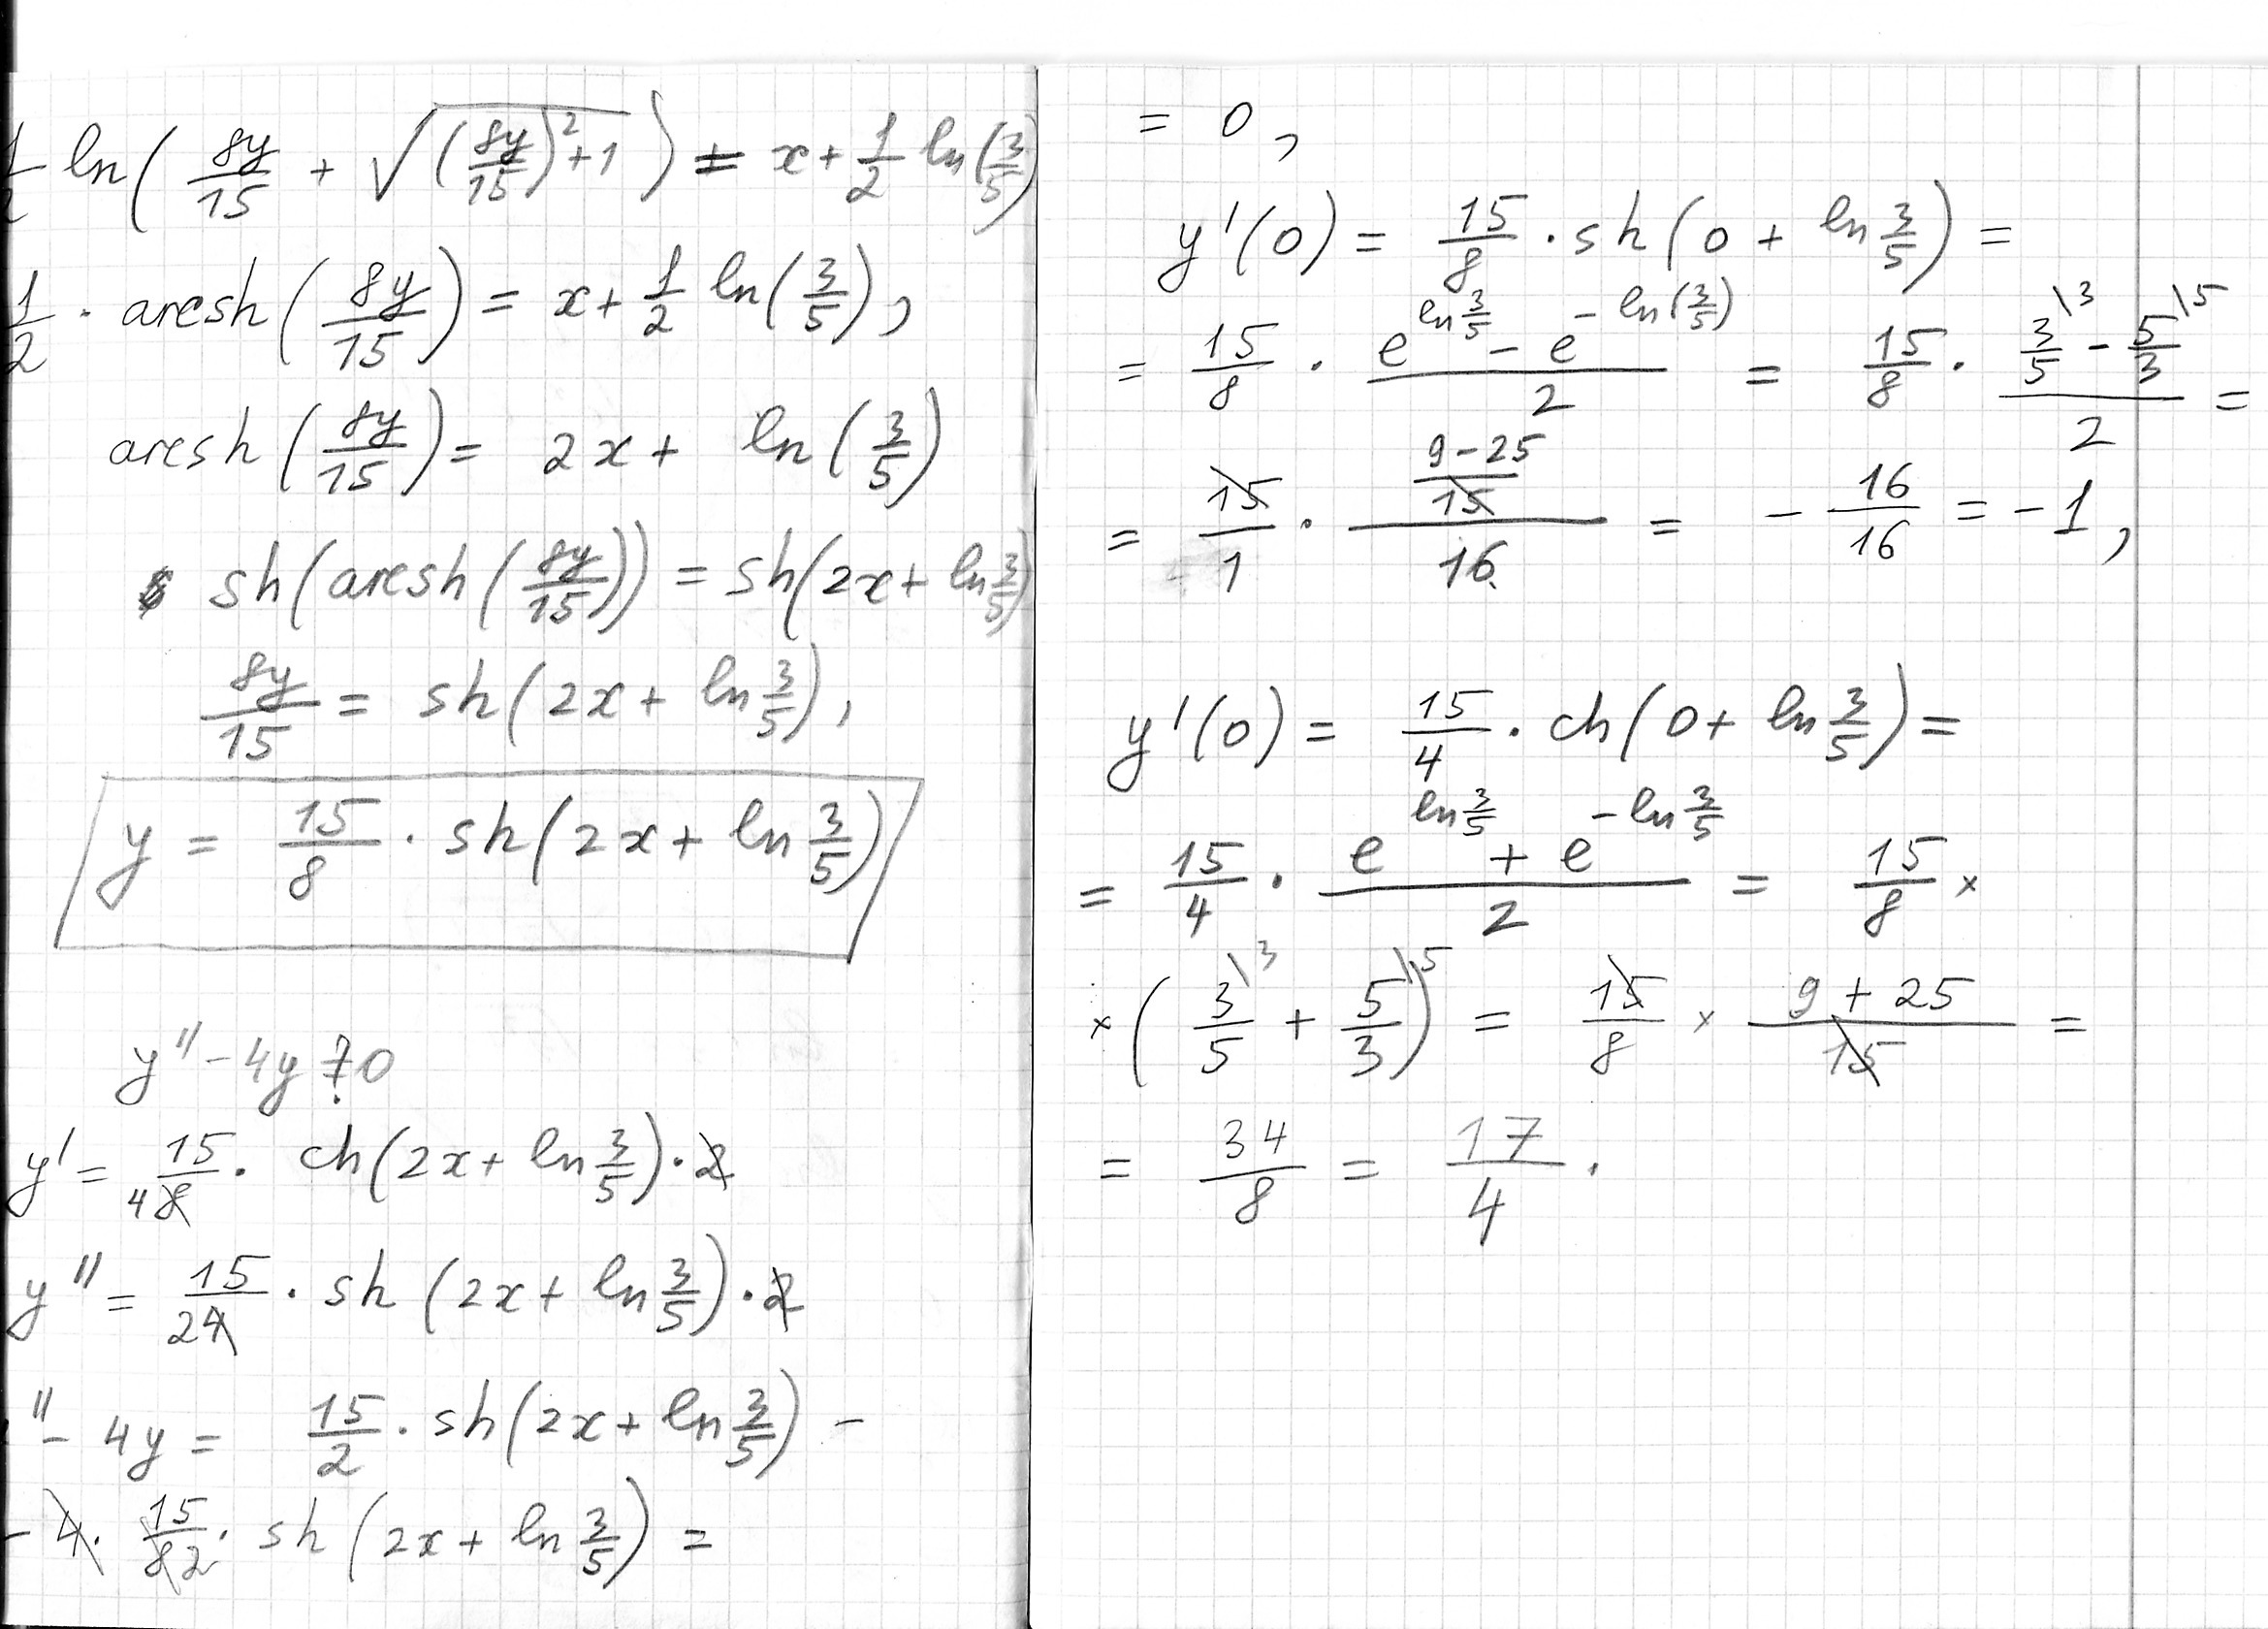 1/2 ln(8y/15 + √((8y/15)²+1)) = x + 1/2 ln(3/5)
1/2 · arcsh(8y/15) = x + 1/2 ln(3/5),
arcsh(8y/15) = 2x + ln(3/5)
sh(arcsh(8y/15)) = sh(2x + ln 3/5)
8y/15 = sh(2x + ln 3/5),
y = 15/8 · sh(2x + ln 3/5)
y'' - 4y ?= 0
y' = 15/8 4 · ch(2x + ln 3/5) · 2
y'' = 15/4 2 · sh(2x + ln 3/5) · 2
'' - 4y = 15/2 · sh(2x + ln 3/5) -
- 4 · 15/8 2 · sh(2x + ln 3/5) =
= 0,
y'(0) = 15/8 · sh(0 + ln 3/5) =
= 15/8 · (e^(ln 3/5) - e^(-ln(3/5)))/2 = 15/8 · (3/5 \3 - 5/3 \5)/2 =
= 15/1 · ((9-25)/15)/16 = - 16/16 = -1,
y'(0) = 15/4 · ch(0 + ln 3/5) =
= 15/4 · (e^(ln 3/5) + e^(-ln 3/5))/2 = 15/8 ×
× (3/5 \3 + 5/3 \5) = 15/8 × (9 + 25)/15 =
= 34/8 = 17/4 .